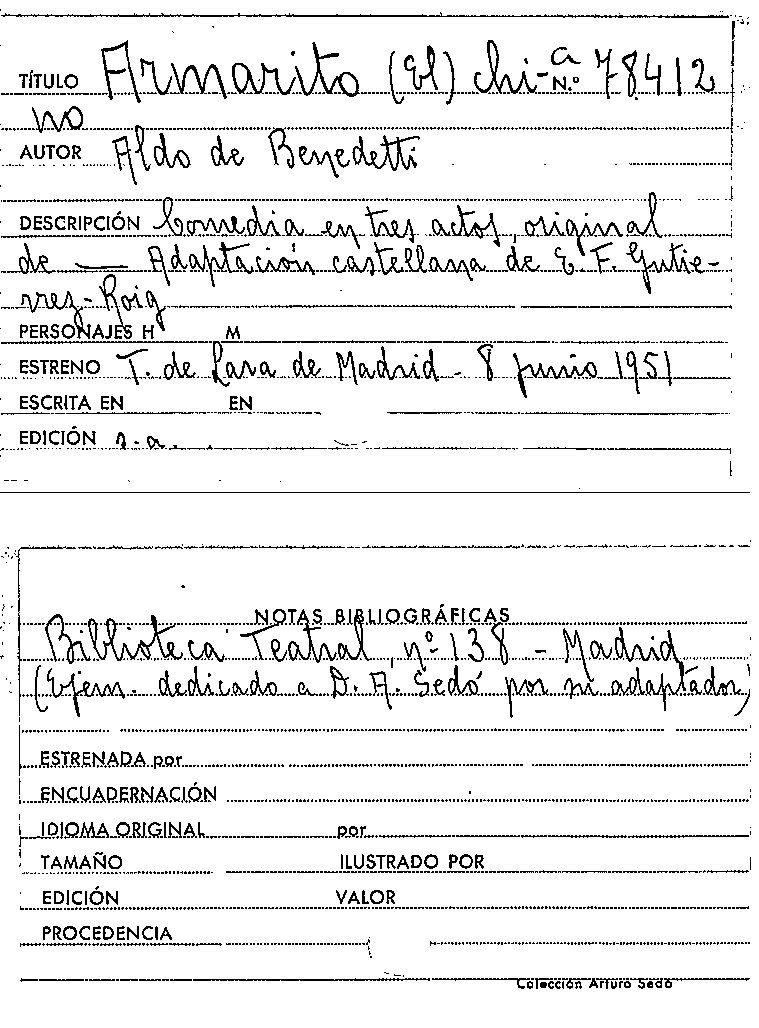 TÍTULO Armarito (El) chi- N.º a 78412
no
AUTOR Aldo de Benedetti
DESCRIPCIÓN Comedia en tres actos, original
de — Adaptación castellana de E. F. Gutie-
rrez-Roig
PERSONAJES H M
ESTRENO T. de Lara de Madrid - 8 junio 1951
ESCRITA EN EN
EDICIÓN s.a.
NOTAS BIBLIOGRÁFICAS
Biblioteca Teatral, nº 138 - Madrid
(Ejem. dedicado a D. A. Sedó por su adaptador)
ESTRENADA por
ENCUADERNACIÓN
IDIOMA ORIGINAL por
TAMAÑO ILUSTRADO POR
EDICIÓN VALOR
PROCEDENCIA
Colección Arturo Sedó